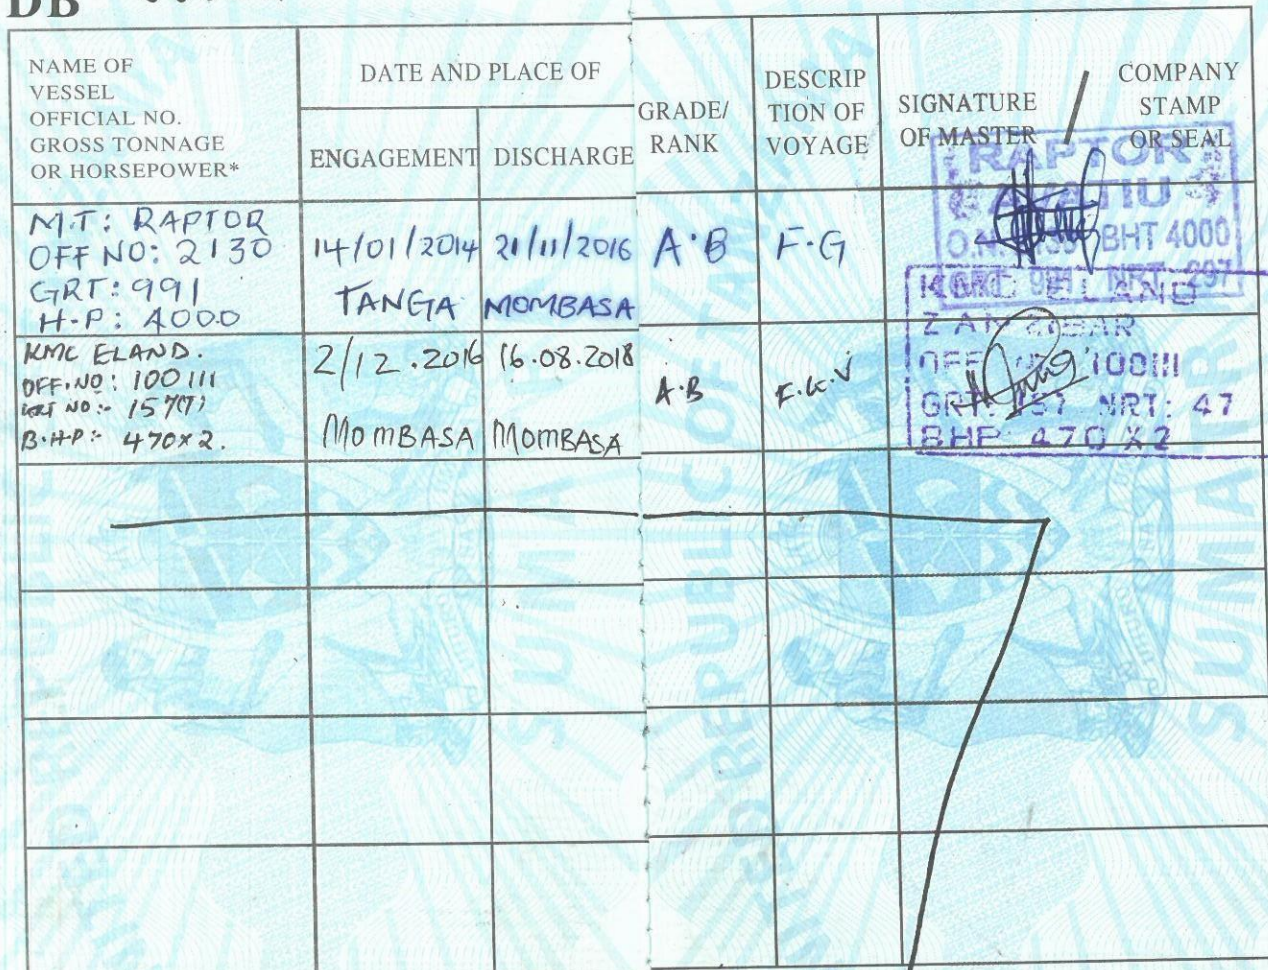 DB
NAME OF
VESSEL
OFFICIAL NO.
GROSS TONNAGE
OR HORSEPOWER*
DATE AND PLACE OF
ENGAGEMENT
DISCHARGE
GRADE/
RANK
DESCRIP
TION OF
VOYAGE
SIGNATURE
OF MASTER
/
COMPANY
STAMP
OR SEAL
M.T: RAPTOR
OFF NO: 2130
GRT: 991
H.P: 4000
14/01/2014
TANGA
21/11/2016
MOMBASA
A.B
F.G
RAPTOR
O.N. BHT 4000
NRT 297
KMC ELAND.
OFF.NO: 100111
GRT NO:- 157(T)
B.H.P:- 470x2.
2/12.2016
MOMBASA
16.08.2018
MOMBASA
A.B
KMC ELAND
ZANZIBAR
OFF 100111
GRT: 157 NRT: 47
BHP: 470 X2
UNITED REPUBLIC OF TANZANIA
SUMATRA